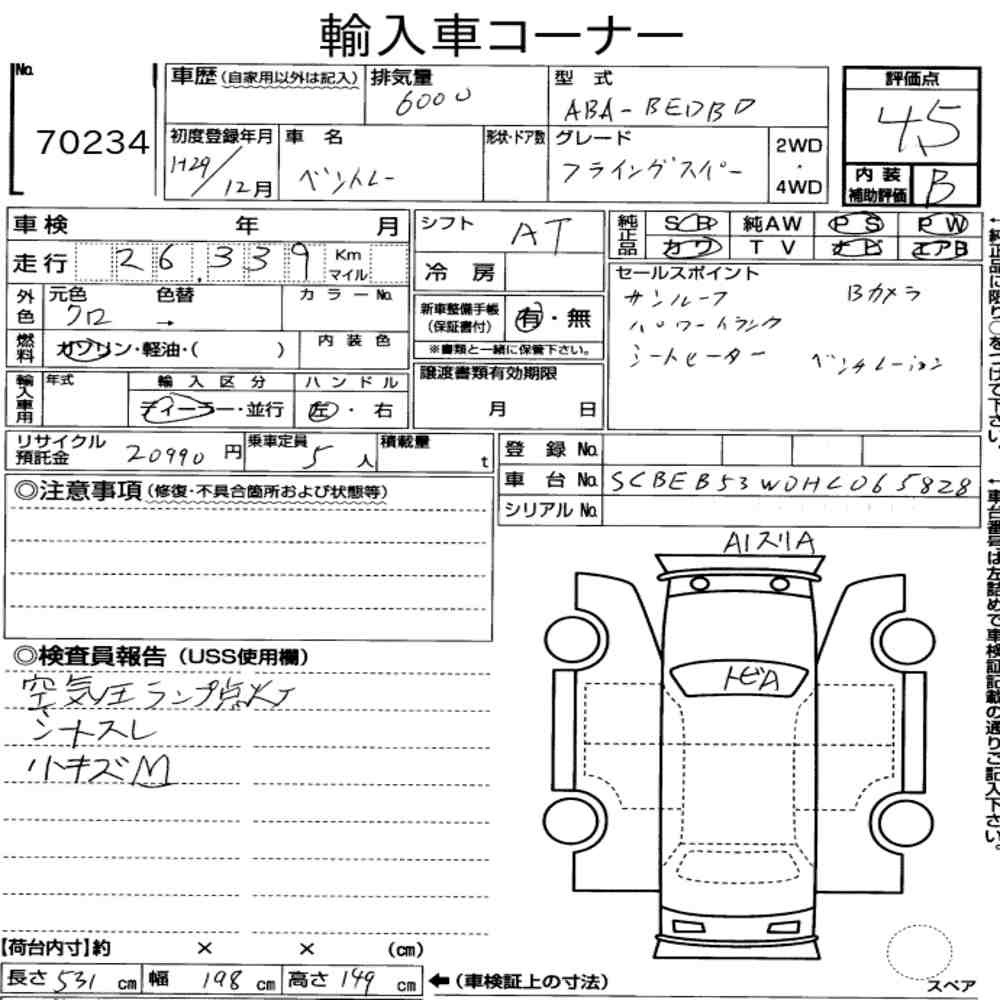 輸入車コーナー
No. 70234
車歴(自家用以外は記入) 排気量 6000 型式 ABA-BEDBD 評価点 4.5
初度登録年月 H29/12月 車名 ベントレー 形状・ドア数 グレード フライングスパー 2WD・4WD 内装補助評価 B
車検 年 月
走行 26,339 Km マイル
外色 元色 クロ 色替 → カラーNo.
燃料 ガソリン・軽油・( ) 内装色
輸入車用 年式 輸入区分 ディーラー・並行 ハンドル 左・右
シフト AT
冷房
新車整備手帳(保証書付) 有・無
※書類と一緒に保管下さい。
譲渡書類有効期限
月 日
純正品 SR 純AW PS PW
カワ TV ナビ エアB
セールスポイント
サンルーフ Bカメラ
パワートランク
シートヒーター ベンチレーション
←純正品に限り○をつけて下さい。
リサイクル預託金 20990円 乗車定員 5人 積載量 t
登録No.
車台No. SCBEB53W0HC065828
シリアルNo.
←車台番号は左詰めで車検証記載の通りご記入下さい。
◎注意事項(修復・不具合箇所および状態等)
◎検査員報告(USS使用欄)
空気圧ランプ点灯
シートスレ
小キズM
A1スリA
トビA
【荷台内寸】約 × × (cm)
長さ 531 cm 幅 198 cm 高さ 149 cm ←(車検証上の寸法)
スペア